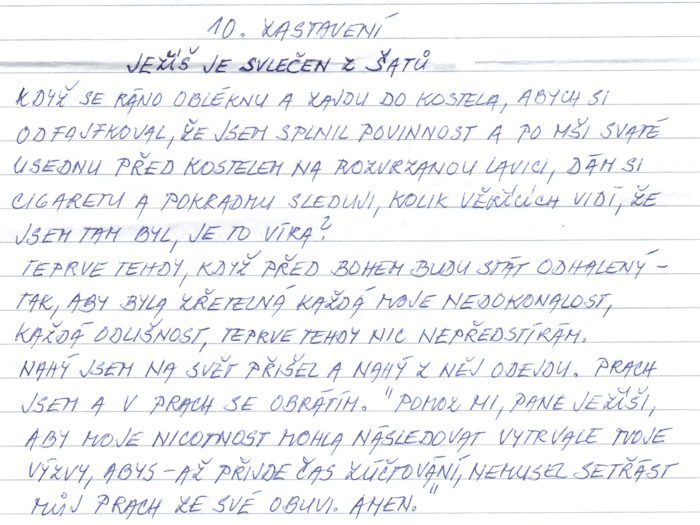 10. ZASTAVENÍ
JEŽÍŠ JE SVLEČEN Z ŠATŮ
KDYŽ SE RÁNO OBLÉKNU A ZAJDU DO KOSTELA, ABYCH SI
ODFAJFKOVAL, ŽE JSEM SPLNIL POVINNOST A PO MŠI SVATÉ
USEDNU PŘED KOSTELEM NA ROZVRZANOU LAVICI, DÁM SI
CIGARETU A POKRADMU SLEDUJI, KOLIK VĚŘÍCÍCH VIDÍ, ŽE
JSEM TAM BYL, JE TO VÍRA?
TEPRVE TEHDY, KDYŽ PŘED BOHEM BUDU STÁT ODHALENÝ -
TAK, ABY BYLA ZŘETELNÁ KAŽDÁ MOJE NEDOKONALOST,
KAŽDÁ ODLIŠNOST, TEPRVE TEHDY NIC NEPŘEDSTÍRÁM.
NAHÝ JSEM NA SVĚT PŘIŠEL A NAHÝ Z NĚJ ODEJDU. PRACH
JSEM A V PRACH SE OBRÁTÍM. "POMOZ MI, PANE JEŽÍŠI,
ABY MOJE NICOTNOST MOHLA NÁSLEDOVAT VYTRVALE TVOJE
VÝZVY, ABYS - AŽ PŘIJDE ČAS ZÚČTOVÁNÍ, NEMUSEL SETŘÁST
MŮJ PRACH ZE SVÉ OBUVI. AMEN."